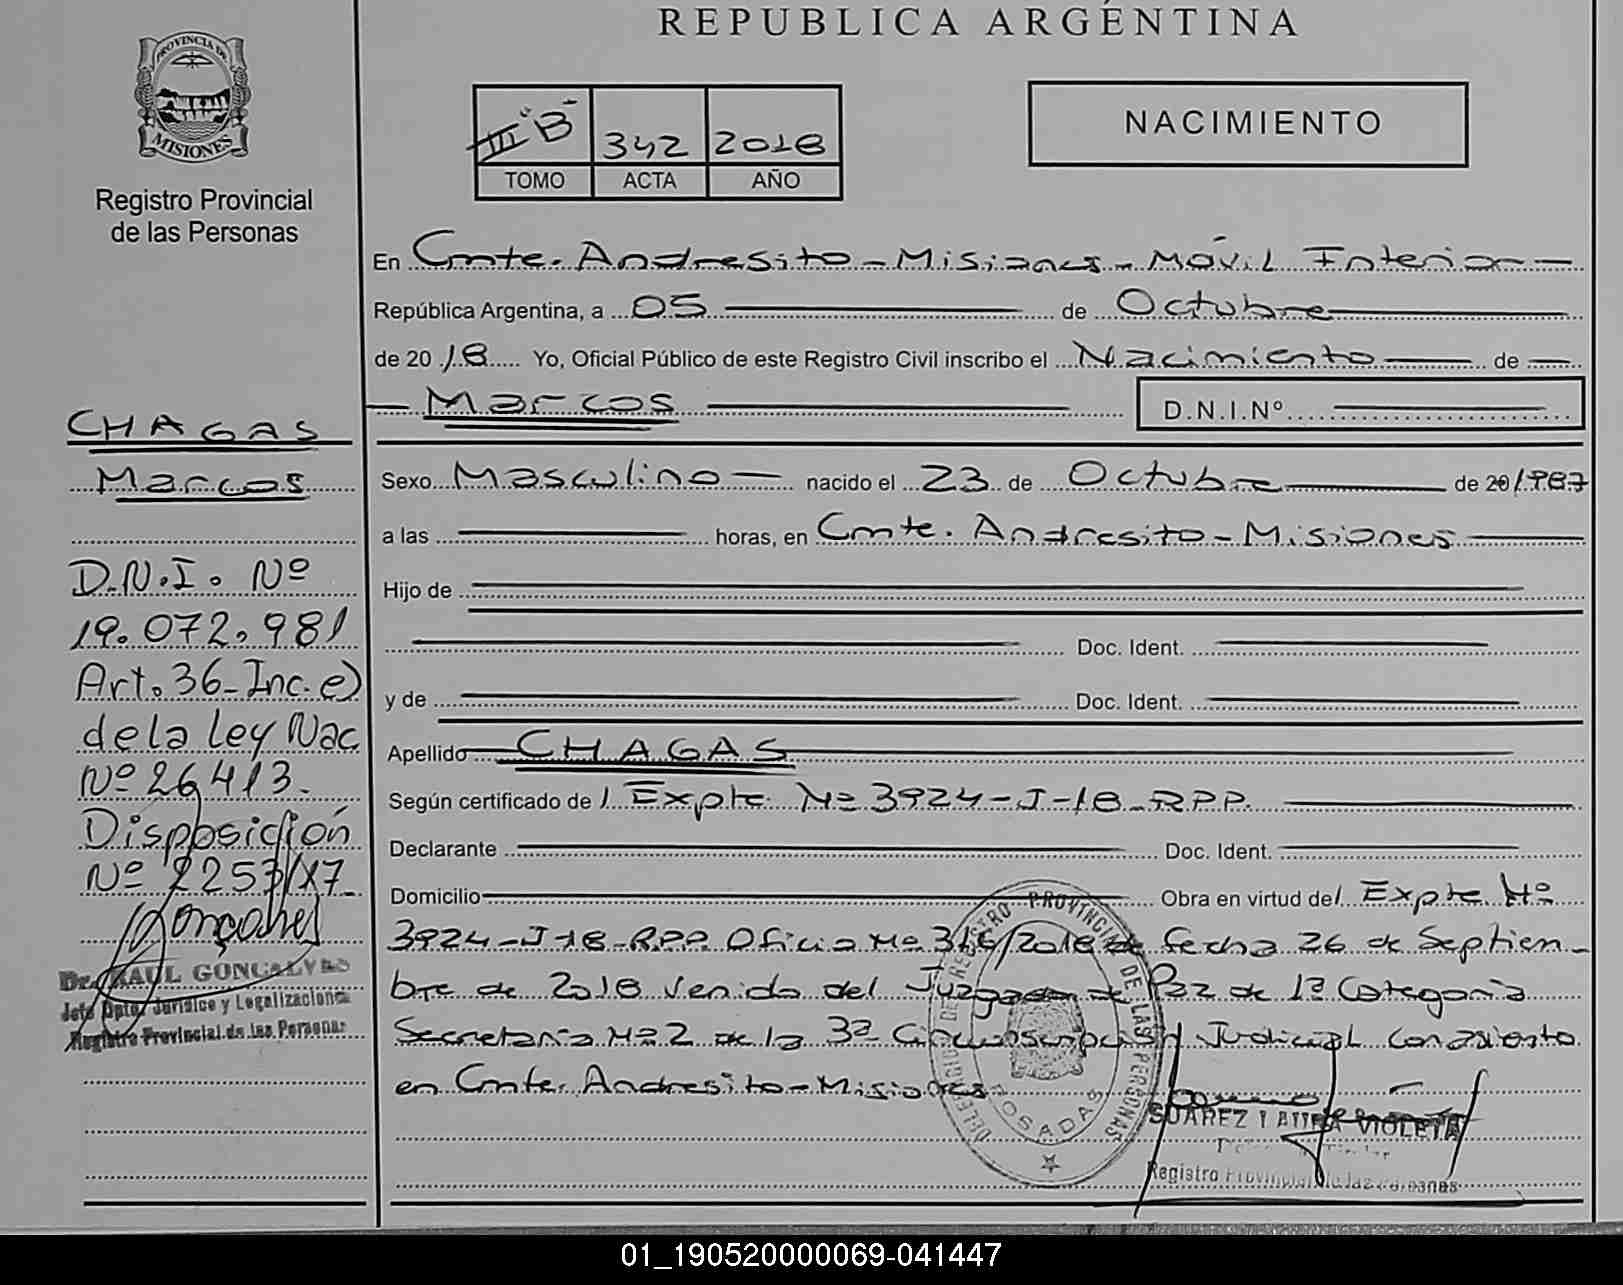 REPUBLICA ARGENTINA
PROVINCIA DE
MISIONES
Registro Provincial
de las Personas
III "B" 342 2018
TOMO ACTA AÑO
NACIMIENTO
En Cmte. Andresito - Misiones - Móvil Interior
República Argentina, a 05 de Octubre
de 2018 Yo, Oficial Público de este Registro Civil inscribo el Nacimiento de
Marcos
D.N.I.Nº
Sexo Masculino nacido el 23 de Octubre de 20 1987
a las horas, en Cmte. Andresito - Misiones
Hijo de
Doc. Ident.
y de Doc. Ident.
Apellido CHAGAS
Según certificado de l Expte Nº 3924-J-18-RPP.
Declarante Doc. Ident.
Domicilio Obra en virtud del Expte. Nº
3924-J-18-RPP. Oficio Nº /2018 de fecha 26 de Septiem-
bre de 2018 venido del Juzgado de Paz de 1ª Categoria
Secretaría Nº 2 de la 3ª Circunscripción Judicial con asiento
en Cmte. Andresito - Misiones
CHAGAS
Marcos
D.N.I. Nº
19.072.981
Art. 36-Inc. e)
de la ley Nac
Nº 26413.
Disposición
Nº 2253/17
Gonçalves
Dr. RAUL GONCALVES
Jefe Dpto. Jurídico y Legalizaciones
Registro Provincial de las Personas
REGISTRO PROVINCIAL DE LAS PERSONAS
POSADAS
SUAREZ VIOLETA
Registro Provincial de las Personas
01_190520000069-041447